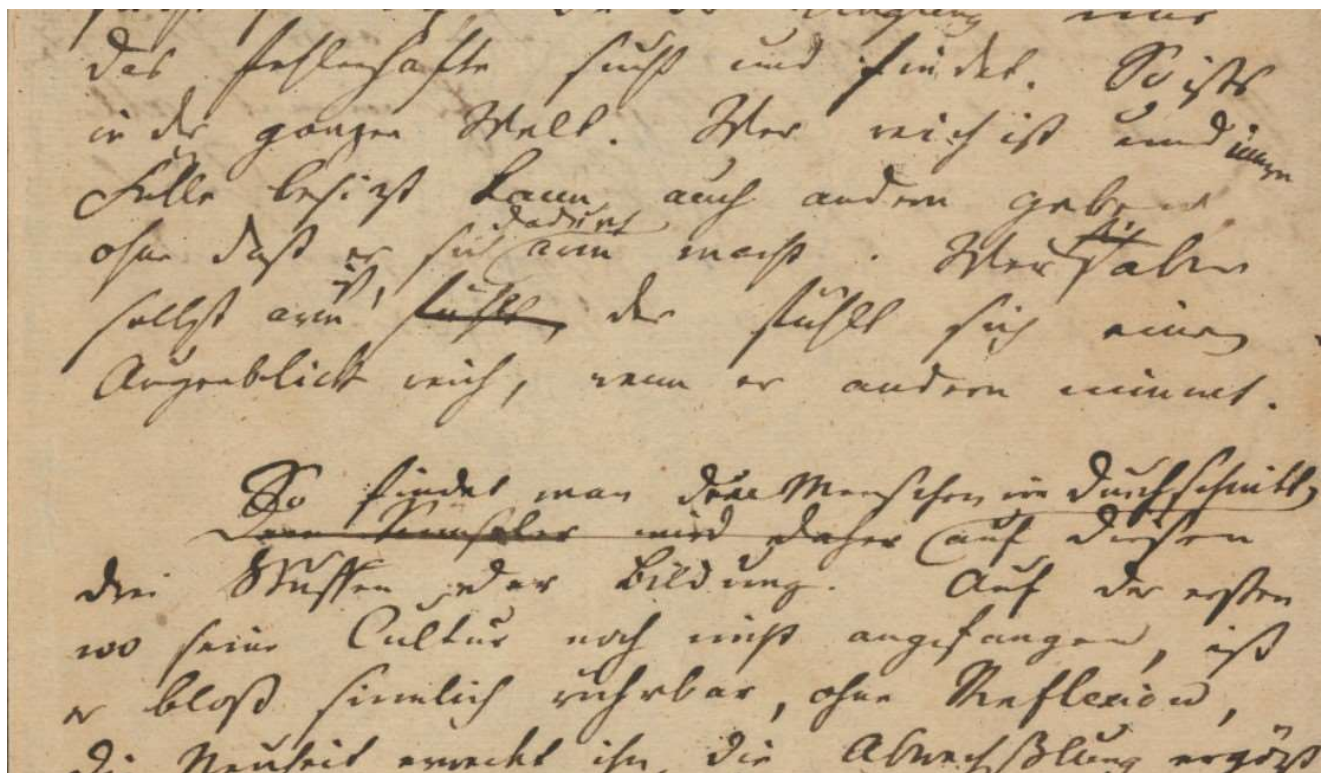 das fehlerhafte sucht und findet. So ists
in der ganzen Welt. Wer reich ist und innre
Fülle besitzt kann auch andern geben
ohne daß er sich dadurch arm macht. Wer aber
selbst arm ist, fühlt, der fühlt sich einen
Augenblick reich, wenn er andern nimmt.
So findet man den Menschen im Durchschnitt,
wird daher auf diesen
drei Stuffen der Bildung. Auf der ersten
wo seine Cultur noch nicht angefangen, ist
er bloß sinnlich rührbar, ohne Reflexion,
die Neuheit erweckt ihn, die Abwechßlung ergözt